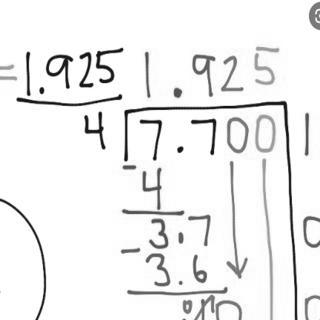 =1.925 1.925
4 7.700
- 4
3.7
- 3.6